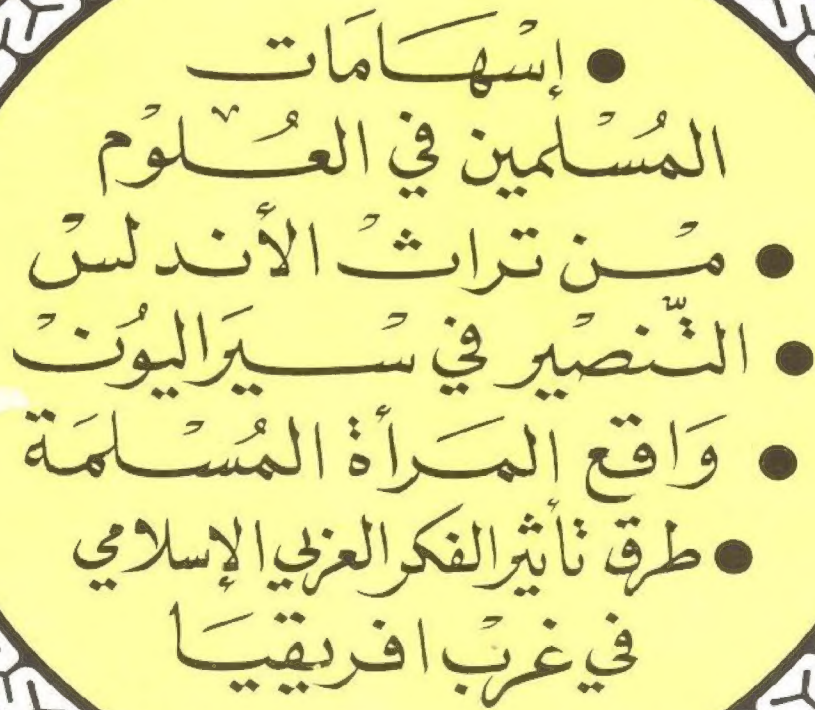 • إسْهَامَات
المُسْلمين في العُلوْم
• مْن تراثْ الأندلسْ
• التّنصْير في سْيَراليُونْ
• وَاقع المَرأة المُسْلمَة
• طرق تأثير الفكر العربي الإسلامي
في غرْب افريقيَا